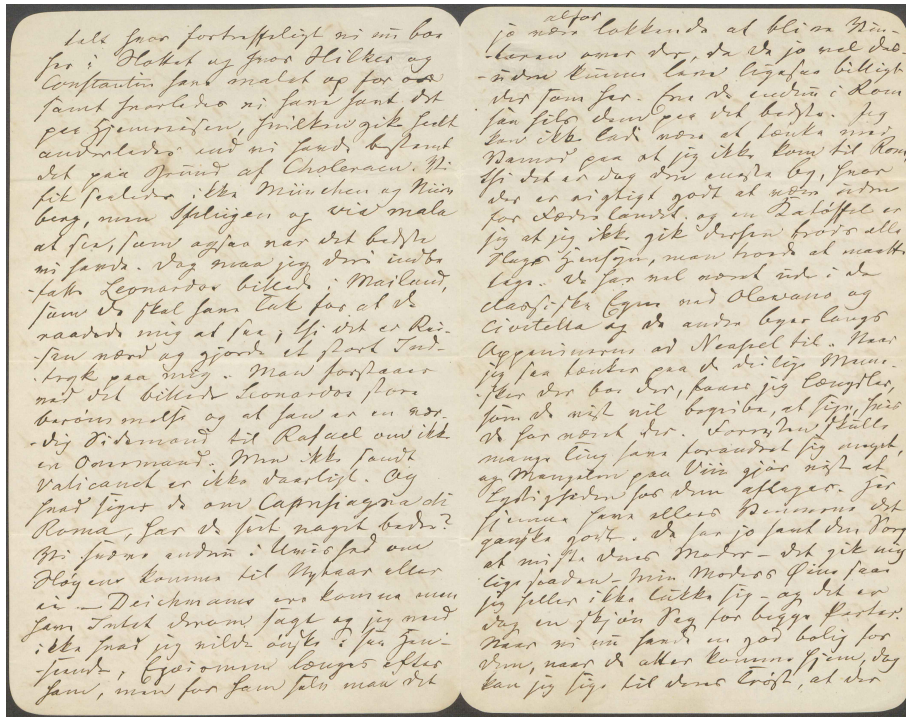 talt hvor fortræffeligt vi nu boe
her i Huset og hvor Hilker og
Constantin have malet op for os
samt hvorledes vi have havt det
paa Hjemreisen, hvilken gik heelt
anderledes end vi havde bestemt
det paa Grund af Choleraen. Vi
fik saaledes ikke München og Nürn
berg, men Splügen og via mala
at see, som ogsaa var det bedste
vi havde. Dog maa jeg deri indbe-
-fatte Leonardos billede i Mailand,
som De skal have Tak for at De
raadede mig at see, thi det er Rei-
-sen værd og gjorde et stort Ind-
-tryk paa mig. Man forstaaer
ved det billede Leonardos store
berømmelse og at han er en vær-
-dig Sidemand til Rafael om ikke
en Overmand. Men ikke sandt
Vaticanet er ikke daarligt. Og
hvad siger De om Campagna di
Roma, har De seet noget bedre?
Vi svæve endnu i Uvished om
Høyens komme til Nytaar eller
ei — Deichmanns ere komne men
have Intet derom sagt og jeg veed
ikke hvad jeg vilde ønske i saa Hen-
-seende, længes efter
ham, men for ham selv maa det
jo være altfor lokkende at blive Vin-
-teren over der, da de jo vel des-
-uden kunne leve ligesaa billigt
der som her. Ere de endnu i Rom
saa hils dem paa det bedste. Jeg
kan ikke lade være at tænke med
Vemod paa at jeg ikke kom til Rom,
thi det er dog den eneste by, hvor
der er rigtigt godt at være uden
for Fædrelandet. og en Katøffel er
jeg at jeg ikke gik derhen trods alle
Slags Hensyn, man troede at maatte
tage. De har vel været ude i de
classiske Egne ved Olevano og
Civitella og de andre byer langs
Appeninerne ad Neapel til. Naar
jeg saa tænker paa de deilige Menne-
-sker der boe der, faaer jeg Længsler,
som De nok vil begribe, at sige, hvis
De har været der. Forresten skulle
mange ting have forandret sig meget,
og Mangelen paa Viin gjør nok at
Lystigheden hos dem aftager. Her
hjemme have ellers Vennerne det
ganske godt. De har jo havt den Sorg
at miste Deres Moder — det gik mig
ligesaadan — min Moders Øine saae
jeg heller ikke lukke sig — og det er
dog en skjøn Sag for begge Parter.
Naar vi nu havde en god bolig for
dem, naar de atter komme hjem, dog
kan jeg sige til Deres Trøst, at der